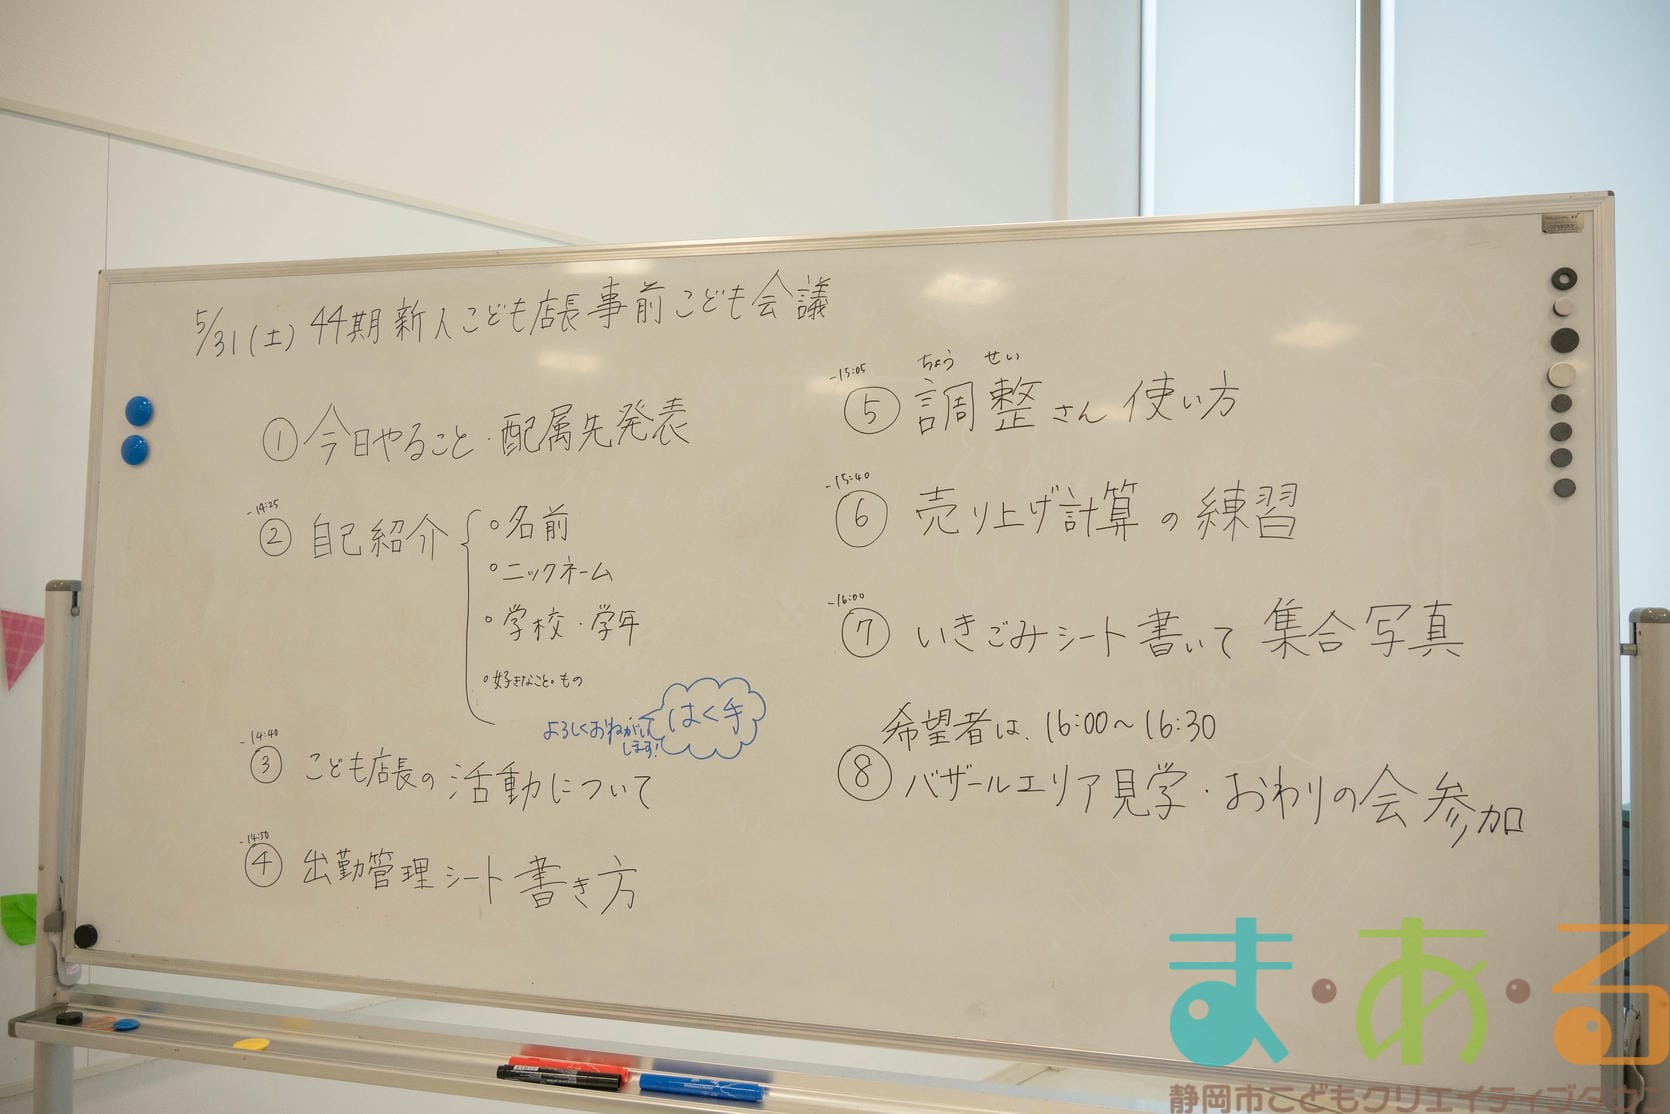 5/31(土) 44期新人こども店長事前こども会議
①今日やること・配属先発表
-14:25
②自己紹介
○名前
○ニックネーム
○学校・学年
○好きなこと・もの
よろしくおねがいします!
はく手
-14:40
③こども店長の活動について
-14:50
④出勤管理シート書き方
-15:05
ちょう せい
⑤調整さん使い方
-15:40
⑥売り上げ計算の練習
-16:00
⑦いきごみシート書いて集合写真
希望者は、16:00〜16:30
⑧バザールエリア見学・おわりの会参加
ま・あ・る
静岡市こどもクリエイティブタウン